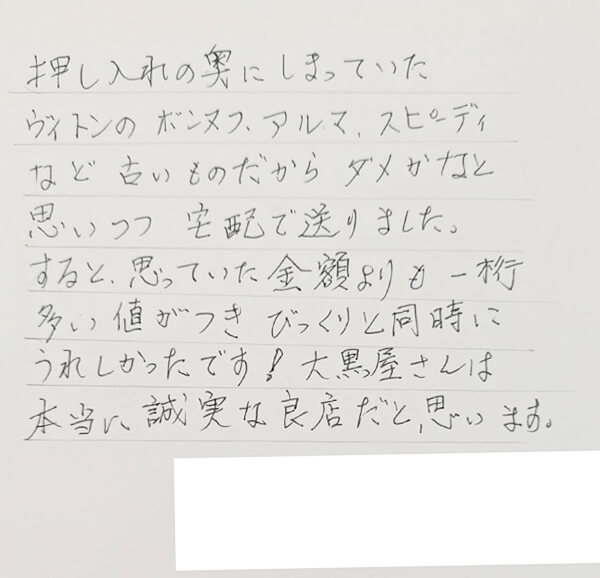 押し入れの奥にしまっていた
ヴィトンの ボンヌフ、アルマ、スピーディ
など 古いものだから ダメかなと
思いつつ 宅配で送りました。
すると、思っていた金額よりも一桁
多い値がつき びっくりと同時に
うれしかったです！大黒屋さんは
本当に、誠実な良店だと、思います。